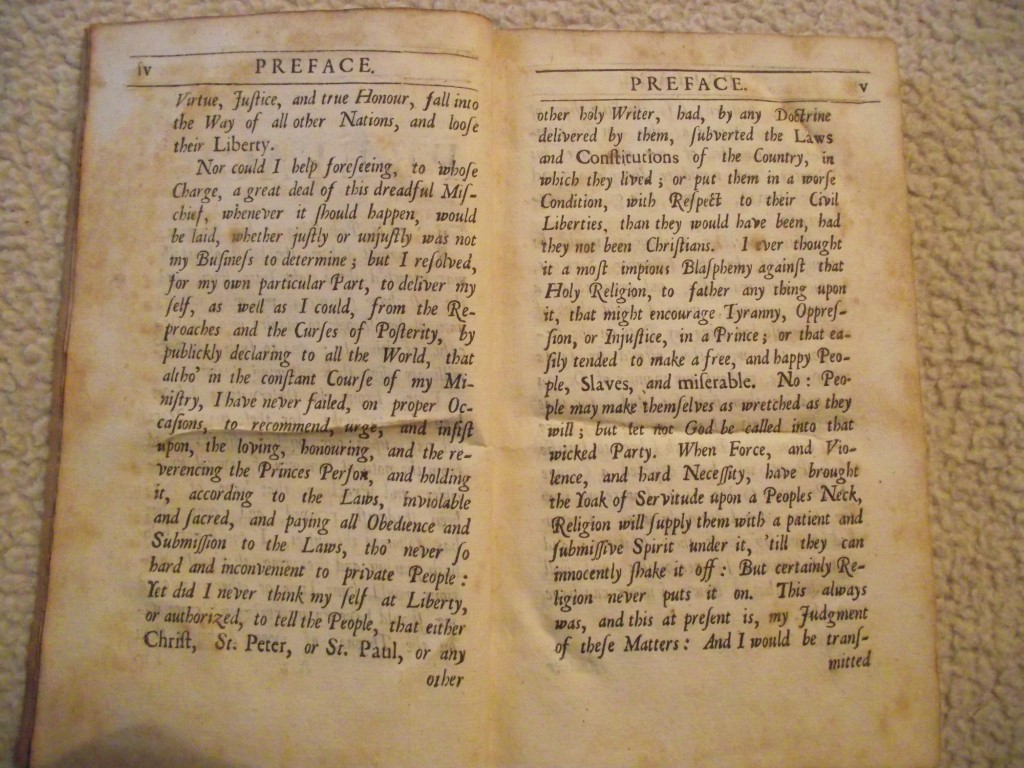 iv
PREFACE.
Virtue, Juſtice, and true Honour, fall into
the Way of all other Nations, and looſe
their Liberty.
Nor could I help foreſeeing, to whoſe
Charge, a great deal of this dreadful Miſ-
chief, whenever it ſhould happen, would
be laid, whether juſtly or unjuſtly was not
my Buſineſs to determine; but I reſolved,
for my own particular Part, to deliver my
ſelf, as well as I could, from the Re-
proaches and the Curſes of Poſterity, by
publickly declaring to all the World, that
altho' in the conſtant Courſe of my Mi-
niſtry, I have never failed, on proper Oc-
caſions, to recommend, urge, and inſiſt
upon, the loving, honouring, and the re-
verencing the Princes Perſon, and holding
it, according to the Laws, inviolable
and ſacred, and paying all Obedience and
Submiſſion to the Laws, tho' never ſo
hard and inconvenient to private People:
Yet did I never think my ſelf at Liberty,
or authorized, to tell the People, that either
Chriſt, St. Peter, or St. Paul, or any
other
PREFACE.
v
other holy Writer, had, by any Doctrine
delivered by them, ſubverted the Laws
and Conſtitutions of the Country, in
which they lived; or put them in a worſe
Condition, with Reſpect to their Civil
Liberties, than they would have been, had
they not been Chriſtians. I ever thought
it a moſt impious Blaſphemy againſt that
Holy Religion, to father any thing upon
it, that might encourage Tyranny, Oppreſ-
ſion, or Injuſtice, in a Prince; or that ea-
ſily tended to make a free, and happy Peo-
ple, Slaves, and miſerable. No: Peo-
ple may make themſelves as wretched as they
will; but let not God be called into that
wicked Party. When Force, and Vio-
lence, and hard Neceſſity, have brought
the Yoak of Servitude upon a Peoples Neck,
Religion will ſupply them with a patient and
ſubmiſſive Spirit under it, 'till they can
innocently ſhake it off: But certainly Re-
ligion never puts it on. This always
was, and this at preſent is, my Judgment
of theſe Matters: And I would be tranſ-
mitted